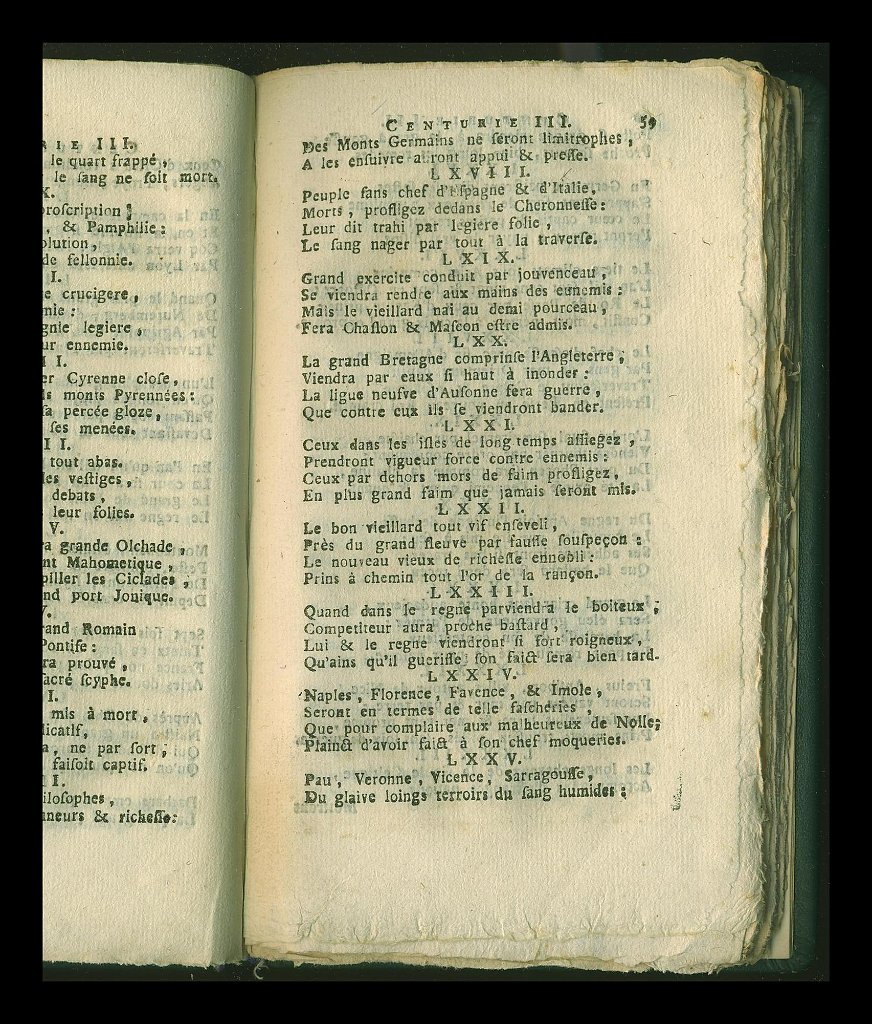 RIE III.
le quart frappé,
le sang ne soit mort.
X.
proscription;
, & Pamphilie:
olution,
de fellonnie.
I.
e crucigere,
mie:
gnie legiere,
ur ennemie.
II.
er Cyrenne close,
ls monts Pyrennées:
sa percée gloze,
ses menées.
III.
tout abas.
les vestiges,
debats,
leur folies.
V.
ra grande Olchade,
nt Mahometique,
piller les Ciclades,
nd port Jonique.
V.
rand Romain
Pontife:
ra prouvé,
sacré scyphe.
I.
mis à mort,
licatif,
a, ne par sort,
faisoit captif.
II.
ilosophes,
nneurs & richesse:
CENTURIE III. 59
Des Monts Germains ne seront limitrophes,
A les ensuivre auront appui & presse.
LXVIII.
Peuple sans chef d'Espagne & d'Italie,
Morts, profligez dedans le Cheronnesse:
Leur dit trahi par legiere folie,
Le sang nager par tout à la traverse.
LXIX.
Grand exercite conduit par jouvenceau,
Se viendra rendre aux mains des ennemis:
Mais le vieillard nai au demi pourceau,
Fera Chaslon & Mascon estre admis.
LXX.
La grand Bretagne comprinse l'Angleterre,
Viendra par eaux si haut à inonder:
La ligue neufve d'Ausonne fera guerre,
Que contre eux ils se viendront bander.
LXXI.
Ceux dans les isles de long temps assiegez,
Prendront vigueur force contre ennemis:
Ceux par dehors mors de faim profligez,
En plus grand faim que jamais seront mis.
LXXII.
Le bon vieillard tout vif enseveli,
Près du grand fleuve par fausse souspeçon:
Le nouveau vieux de richesse ennobli:
Prins à chemin tout l'or de la rançon.
LXXIII.
Quand dans le regne parviendra le boiteux,
Competiteur aura proche bastard,
Lui & le regne viendront si fort roigneux,
Qu'ains qu'il guerisse son faict sera bien tard.
LXXIV.
Naples, Florence, Favence, & Imole,
Seront en termes de telle fascheries,
Que pour complaire aux malheureux de Nolle;
Plainct d'avoir faict à son chef moqueries.
LXXV.
Pau, Veronne, Vicence, Sarragousse,
Du glaive loings terroirs du sang humides: